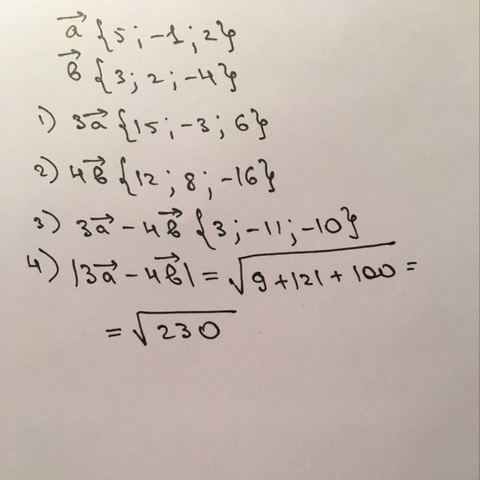 a⃗ {5; -1; 2}
b⃗ {3; 2; -4}
1) 3a⃗ {15; -3; 6}
2) 4b⃗ {12; 8; -16}
3) 3a⃗ - 4b⃗ {3; -11; -10}
4) |3a⃗ - 4b⃗| = √(9+121+100) =
= √230